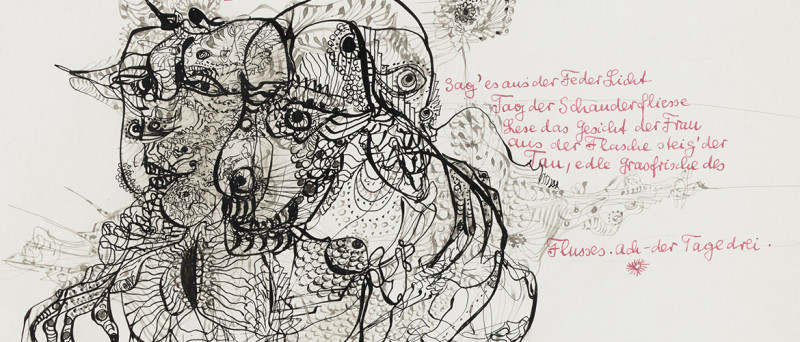 Sag' es aus der Feder Licht
Tag der Schauder fliesse
Lese das Gesicht der Frau
aus der Flasche steig' der
Tau, edle grasfrische des
Flusses. ach - der Tage drei.